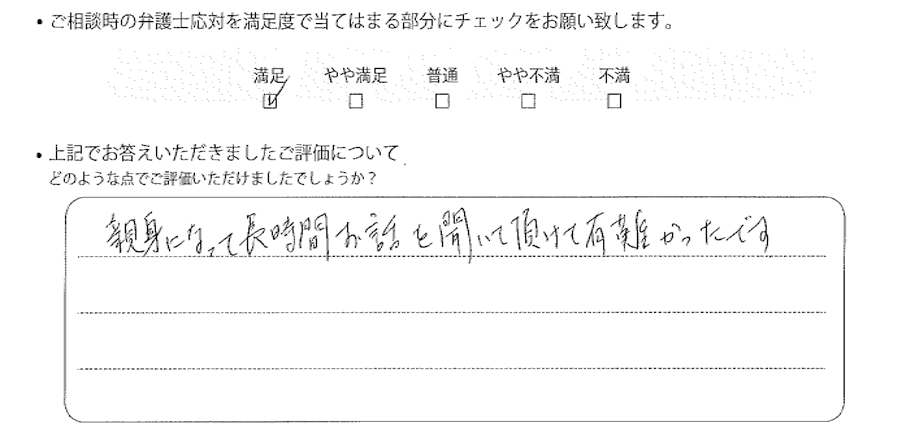 ・ご相談時の弁護士応対を満足度で当てはまる部分にチェックをお願い致します。
満足 やや満足 普通 やや不満 不満
☑ □ □ □ □
・上記でお答えいただきましたご評価について
どのような点でご評価いただけましたでしょうか？
親身になって長時間お話を聞いて頂けて有難かったです